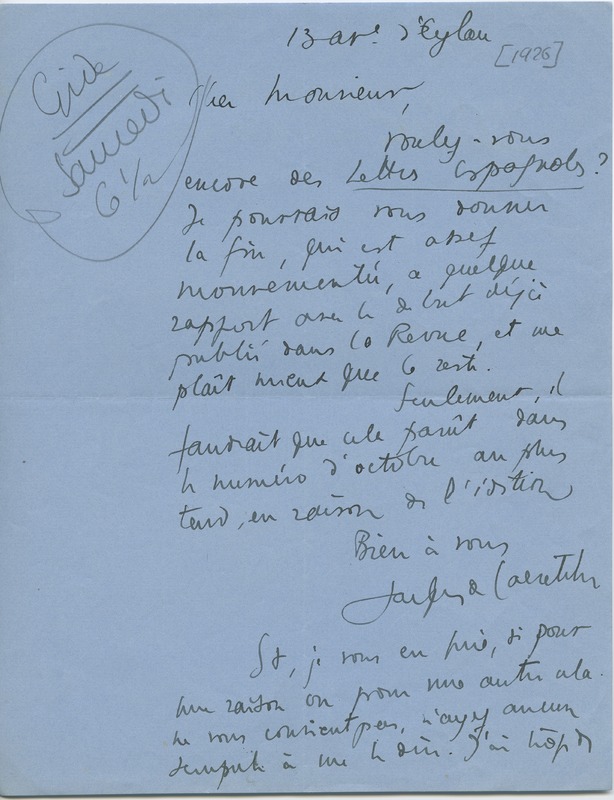 13 ave d'Eylau
[1926]
Gide
Samedi
6 1/2
Cher Monsieur,
voulez-vous
encore des Lettres espagnoles ?
Je pourrais vous donner
la fin, qui est assez
mouvementée, a quelque
rapport avec le début déjà
publié dans la Revue, et me
plaît mieux que le reste.
Seulement, il
faudrait que cela parût dans
le numéro d'octobre au plus
tard, en raison de l'édition
Bien à vous
Jacques de Lacretelle
Et, je vous en prie, si pour
une raison ou pour une autre cela
ne vous convient pas, n'ayez aucun
scrupule à me le dire. J'ai trop de